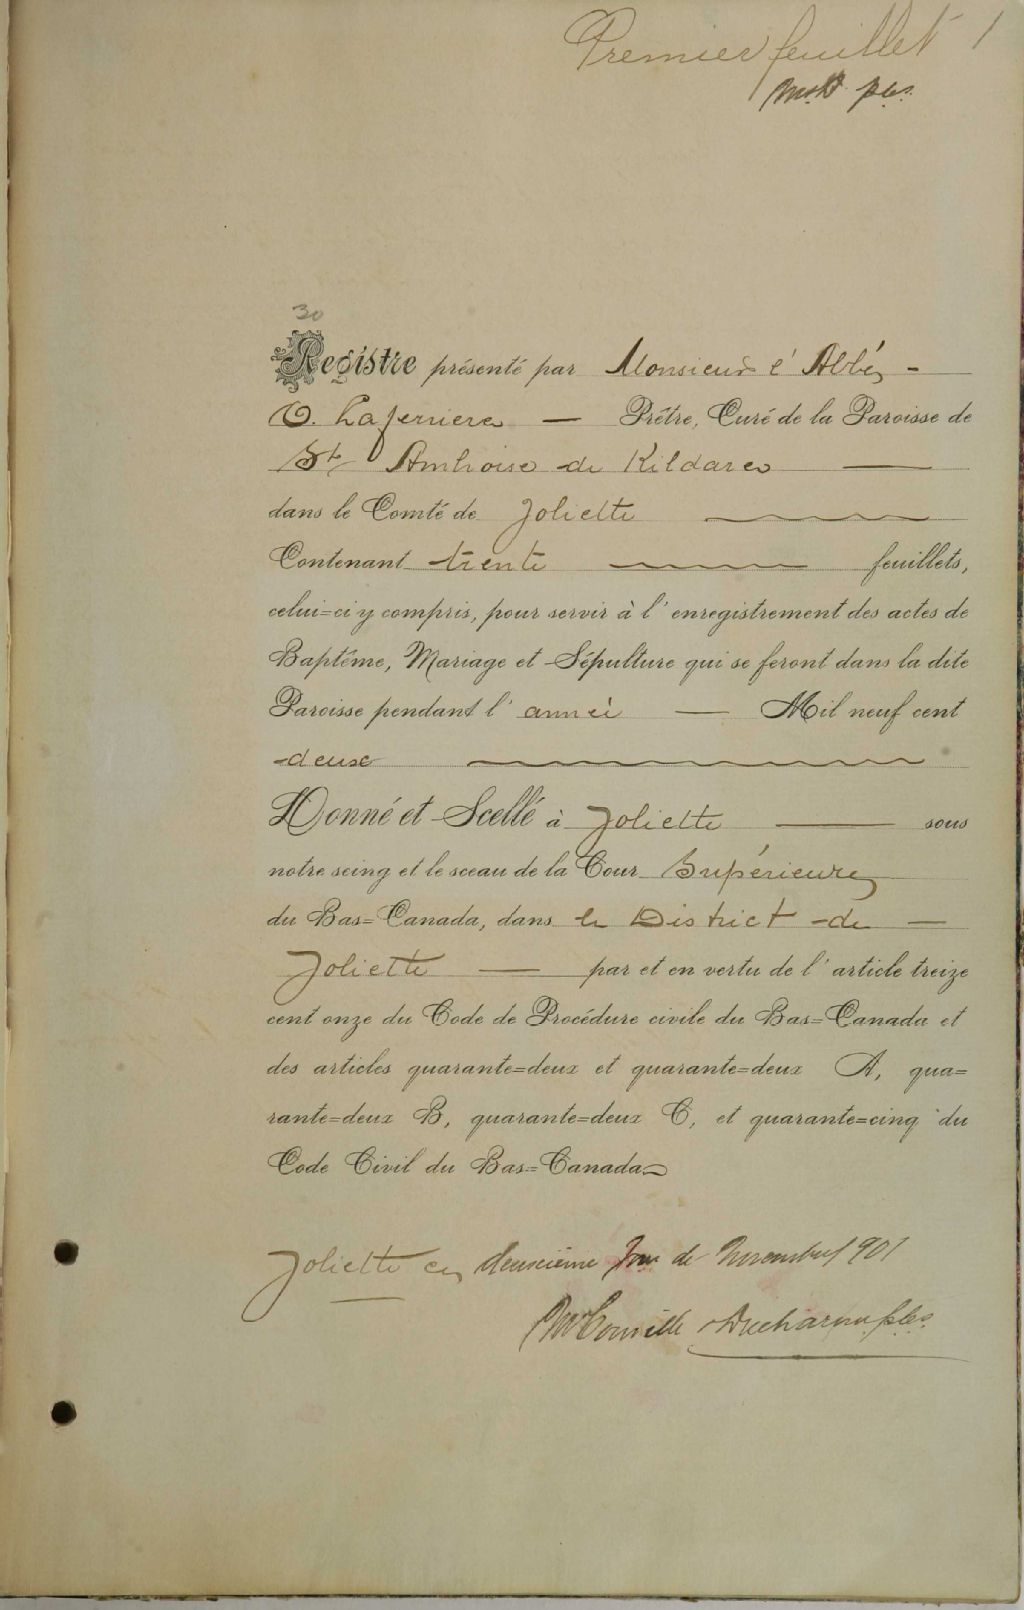 Premier feuillet 1
McD pcs.
30
Registre présenté par Monsieur l'Abbé
O. Laferriere — Prêtre, Curé de la Paroisse de
St Ambroise de Kildare —
dans le Comté de Joliette
Contenant trente feuillets,
celui=ci y compris, pour servir à l'enregistrement des actes de
Baptême, Mariage et Sépulture qui se feront dans la dite
Paroisse pendant l'année — Mil neuf cent
deux
Donné et Scellé à Joliette — sous
notre seing et le sceau de la Cour Supérieure
du Bas=Canada, dans le District de —
Joliette — par et en vertu de l'article treize
cent onze du Code de Procédure civile du Bas=Canada et
des articles quarante=deux et quarante=deux A, qua=
rante=deux B, quarante=deux C, et quarante=cinq du
Code Civil du Bas=Canada
Joliette ce deuxième Jour de Novembre 1901
McConville & Ducharme pcs.